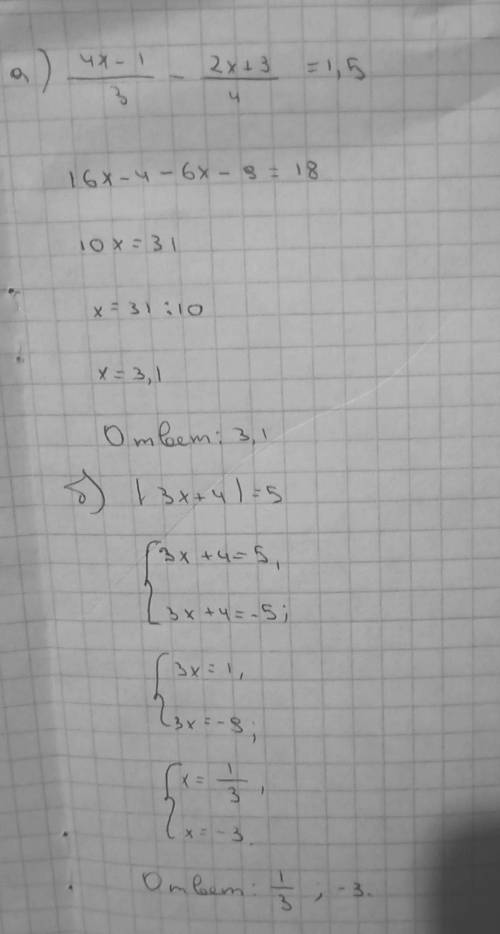 а) (4x-1)/3 - (2x+3)/4 = 1,5
16x-4-6x-9=18
10x=31
x=31:10
x=3,1
Ответ: 3,1
б) |3x+4|=5
{3x+4=5,
3x+4=-5;
{3x=1,
3x=-9;
{x=1/3,
x=-3.
Ответ: 1/3; -3.